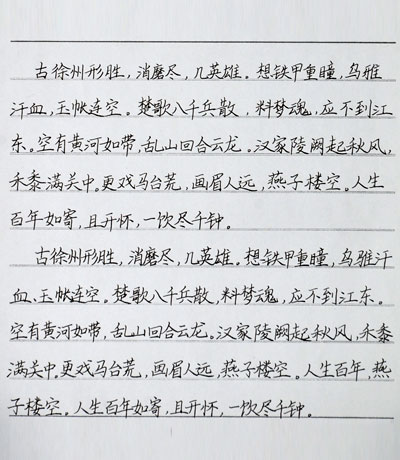 古徐州形胜，消磨尽，几英雄。想铁甲重瞳，乌雅
汗血，玉帐连空。楚歌八千兵散，料梦魂，应不到江
东。空有黄河如带，乱山回合云龙。汉家陵阙起秋风，
禾黍满关中。更戏马台荒，画眉人远，燕子楼空。人生
百年如寄，且开怀，一饮尽千钟。
古徐州形胜，消磨尽，几英雄。想铁甲重瞳，乌雅汗
血、玉帐连空。楚歌八千兵散，料梦魂，应不到江东。
空有黄河如带，乱山回合云龙。汉家陵阙起秋风，禾黍
满关中。更戏马台荒，画眉人远，燕子楼空。人生百年，燕
子楼空。人生百年如寄，且开怀，一饮尽千钟。